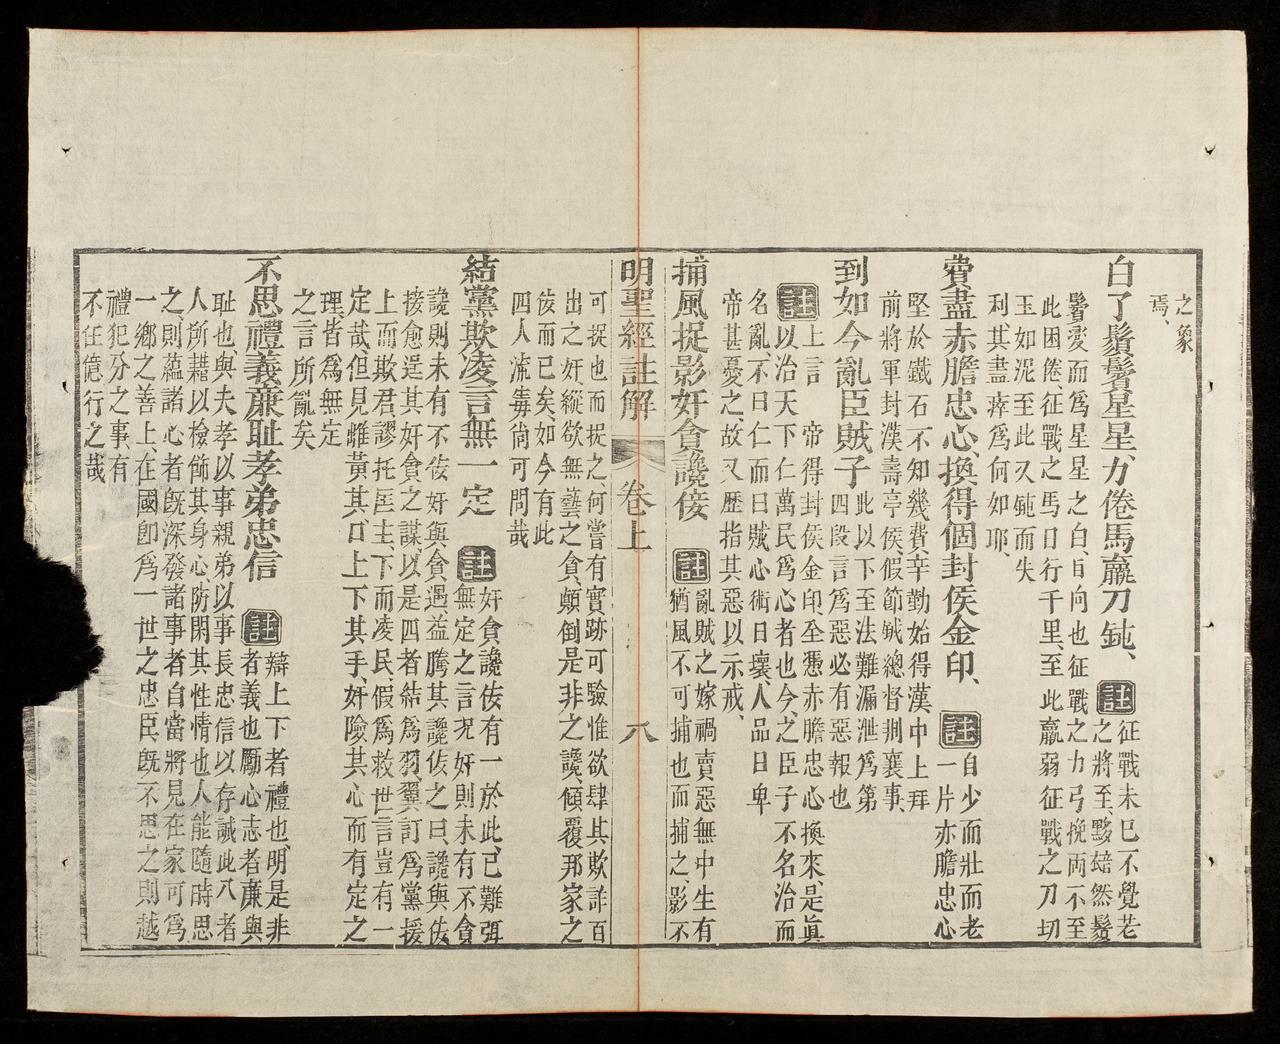 之象
焉、
白了鬚鬢星星、力倦馬羸刀鈍、
註
征戰未已不覺老
之將至、黟結然鬚
鬢変而為星星之白、自向也征戰之力弓挽両不至
此困倦、征戰之馬日行千里、至此羸弱征戰之刀切
玉如泥至此又鈍而失
利其盡瘁為何如耶、
費盡赤膽忠心、換得個封侯金印、
註
自少而壯而老
一片亦膽忠心
堅於鐵石不知幾費辛勤始得漢中上拜
前將軍封漢壽亭侯、假節鉞總督荆襄事、
到如今亂臣賊子
此以下至法難漏泄為第
四段言為惡必有惡報也
註
上言 帝得封侯金印、全憑赤膽忠心換來、是眞
以治天下仁萬民為心者也今之臣子不名治而
名亂、不曰仁而曰賊心術日壞、人品日卑
帝甚憂之故又歷指其惡以示戒、
捕風捉影奸貪讒佞
註
亂賊之嫁禍賣惡無中生有
猶風不可捕也而捕之、影不
明聖經註解 卷上 八
可捉也而捉之、何嘗有實跡可驗惟欲肆其欺詐百
出之奸、縱欲無藝之貪、顛倒是非之讒、傾覆邦家之
佞而已矣、如今有此
四人流毒尙可問哉
結黨欺凌言無一定
註
奸貪讒佞有一於此、己難弭
無定之言況奸則未有不貪
讒則未有不佞奸與貪遇益騰其讒佞之曰讒與佞
接愈逞其奸貪之謀以是四者結為羽翼訂為黨援
上而欺君謬托匡主下而凌民假為救世言豈有一
定哉、但見雌黃其口上下其手、奸險其心而有定之
理皆為無定
之言所亂矣
不思禮義廉耻孝弟忠信
註
辯上下者禮也、明是非
者義也勵心志者廉與
耻也、與夫孝以事親弟以事長忠信以存誠此八者
人所藉以檢飾其身心防閑其性情也人能隨時思
之則蘊諸心者旣深發諸事者自當將見在家可為
一鄉之善上、在國卽為一世之忠臣旣不思之則越
禮犯分之事、有
不任億行之哉